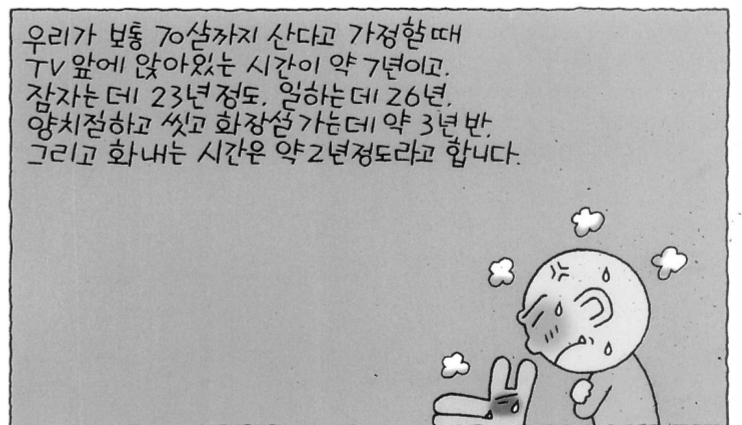 우리가 보통 70살까지 산다고 가정할 때
TV 앞에 앉아있는 시간이 약 7년이고.
잠자는 데 23년 정도. 일하는데 26년.
양치질하고 씻고 화장실 가는데 약 3년 반.
그리고 화내는 시간은 약 2년정도라고 합니다.